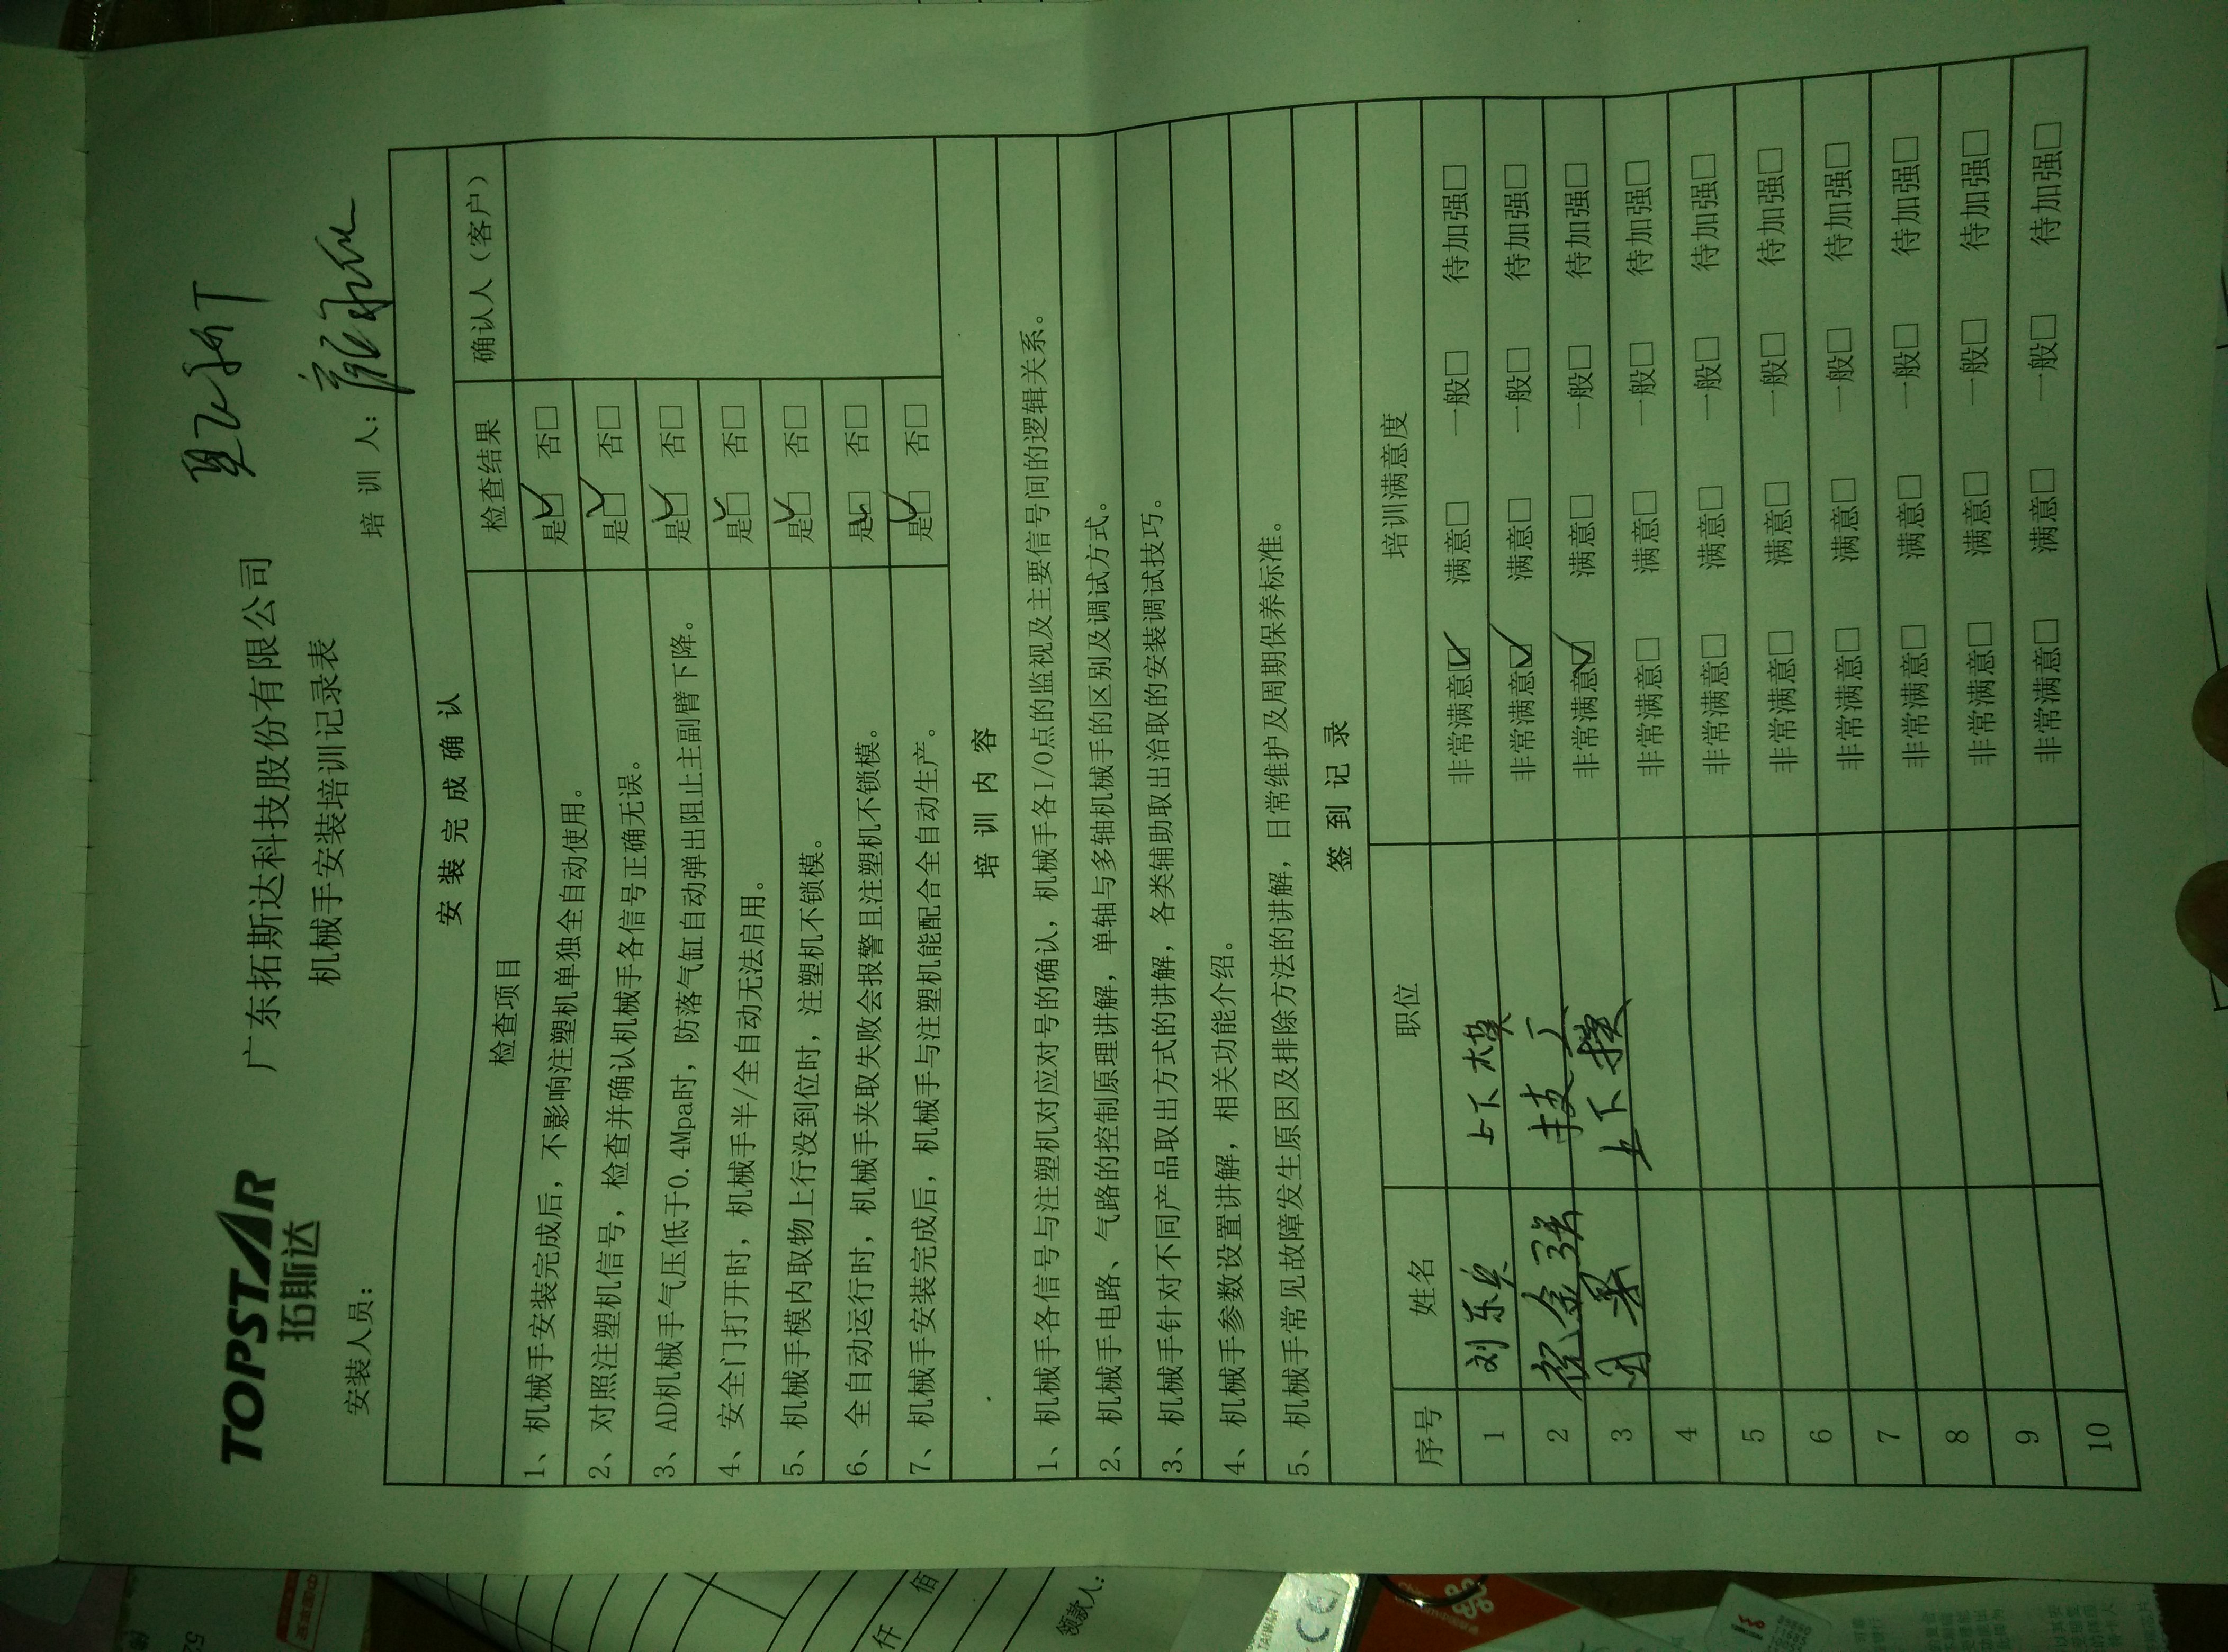 TOPSTAR
拓斯达
广东拓斯达科技股份有限公司
机械手安装培训记录表
安装人员：
培训人：
安装完成确认
检查项目 检查结果 确认人（客户）
1、机械手安装完成后，不影响注塑机单独全自动使用。 是☑ 否□
2、对照注塑机信号，检查并确认机械手各信号正确无误。 是☑ 否□
3、AD机械手气压低于0.4Mpa时，防落气缸自动弹出阻止主副臂下降。 是☑ 否□
4、安全门打开时，机械手半/全自动无法启用。 是☑ 否□
5、机械手模内取物上行没到位时，注塑机不锁模。 是☑ 否□
6、全自动运行时，机械手夹取失败会报警且注塑机不锁模。 是☑ 否□
7、机械手安装完成后，机械手与注塑机能配合全自动生产。 是☑ 否□
培训内容
1、机械手各信号与注塑机对应对号的确认，机械手各I/O点的监视及主要信号间的逻辑关系。
2、机械手电路、气路的控制原理讲解，单轴与多轴机械手的区别及调试方式。
3、机械手针对不同产品取出方式的讲解，各类辅助取出治取的安装调试技巧。
4、机械手参数设置讲解，相关功能介绍。
5、机械手常见故障发生原因及排除方法的讲解，日常维护及周期保养标准。
签到记录
序号 姓名 职位 培训满意度
1 刘东兵 上下模 非常满意☑ 满意□ 一般□ 待加强□
2 金强 技工 非常满意☑ 满意□ 一般□ 待加强□
3 上下模 非常满意☑ 满意□ 一般□ 待加强□
4 非常满意□ 满意□ 一般□ 待加强□
5 非常满意□ 满意□ 一般□ 待加强□
6 非常满意□ 满意□ 一般□ 待加强□
7 非常满意□ 满意□ 一般□ 待加强□
8 非常满意□ 满意□ 一般□ 待加强□
9 非常满意□ 满意□ 一般□ 待加强□
10 非常满意□ 满意□ 一般□ 待加强□
仟 佰
领款人：
TAIWAN